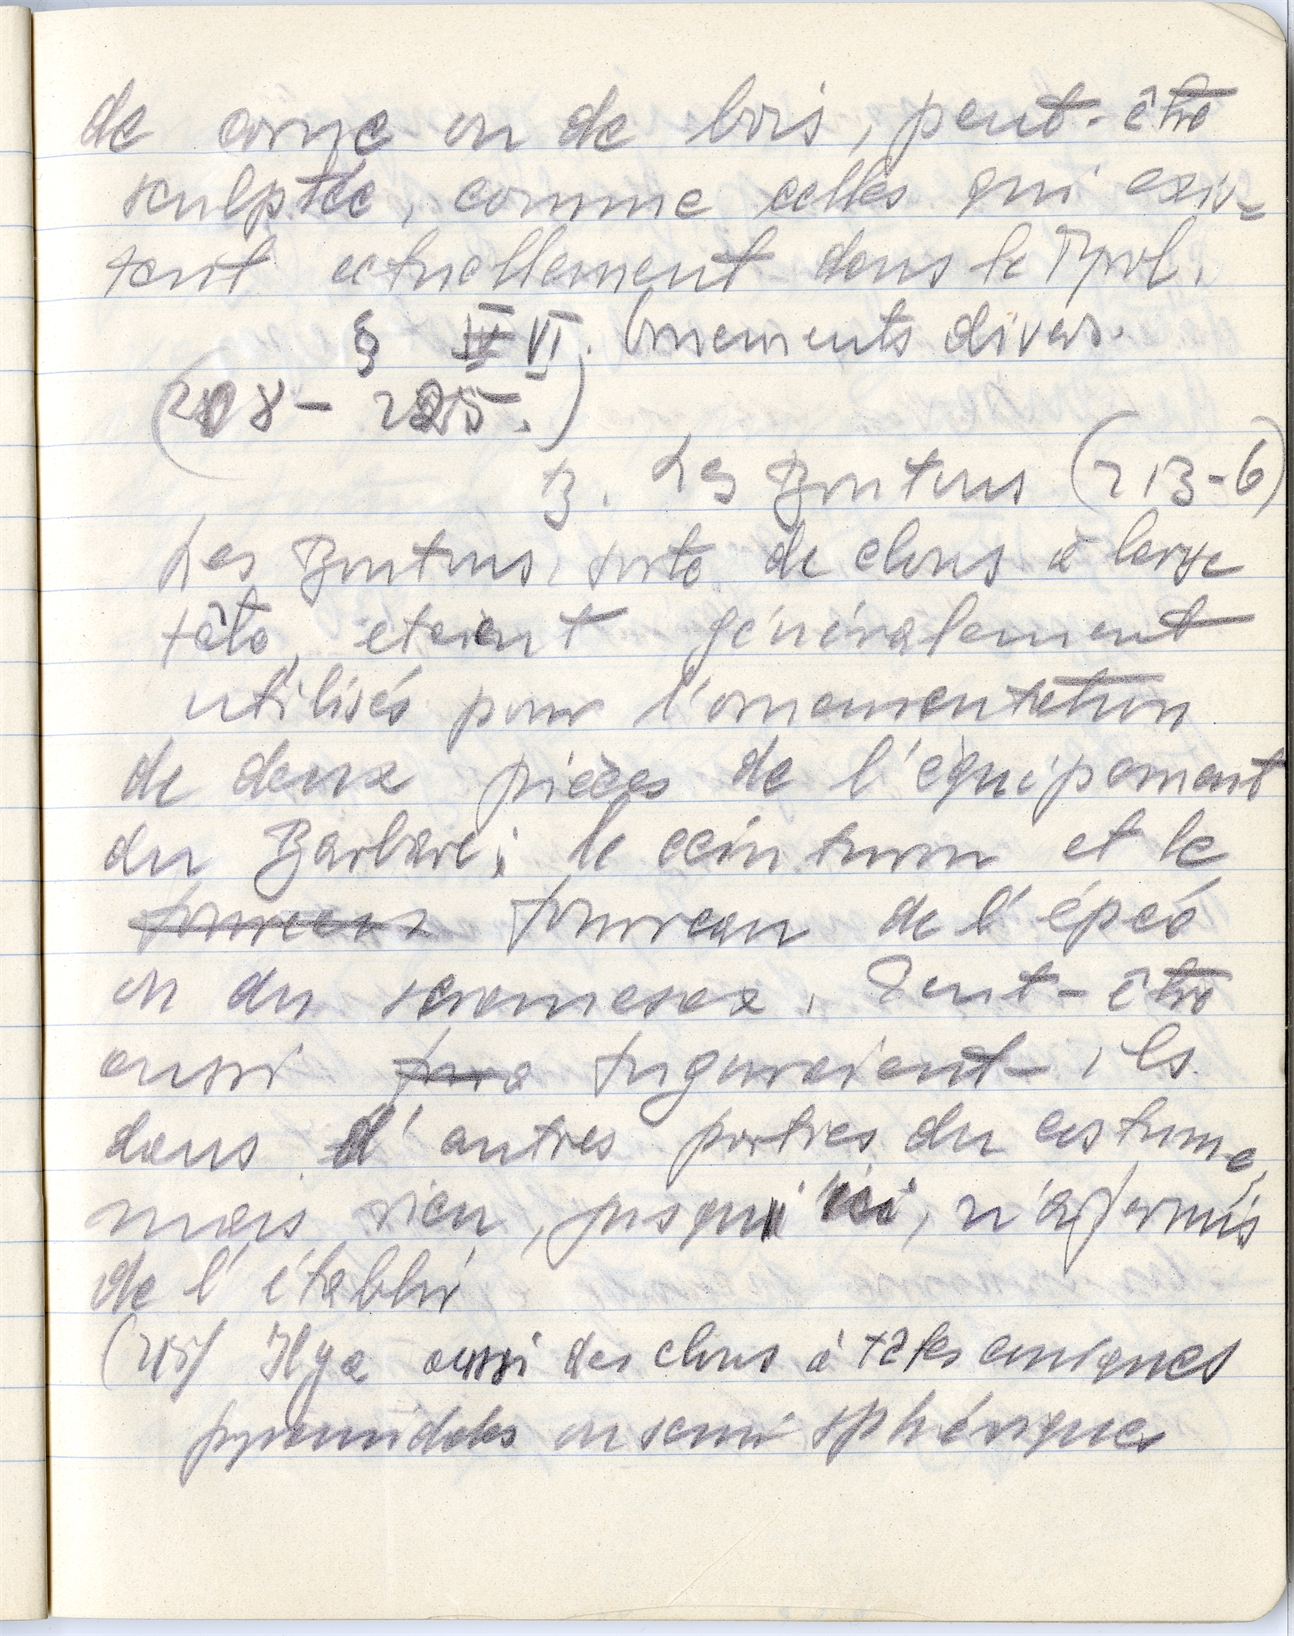 de corne ou de bois, peut-être
sculptée, comme celles qui exis-
tent actuellement dans le Tyrol.
§ IV VI. Ornements divers.
(208 - 225.)
B. Les Boutons (213-6)
Les Boutons, sorte de clous à large
tête, étaient généralement
utilisés pour l'ornementation
de deux pièces de l'équipement
du Barbare : le ceinturon et le
fourreau fourreau de l'épée
ou du scramasax. Peut-être
aussi figuraient-ils
dans d'autres parties du costume,
mais rien, jusqu'ici, n'a permis
de l'établir
(215) Il y a aussi des clous à têtes coniques
pyramidales ou semi sphériques